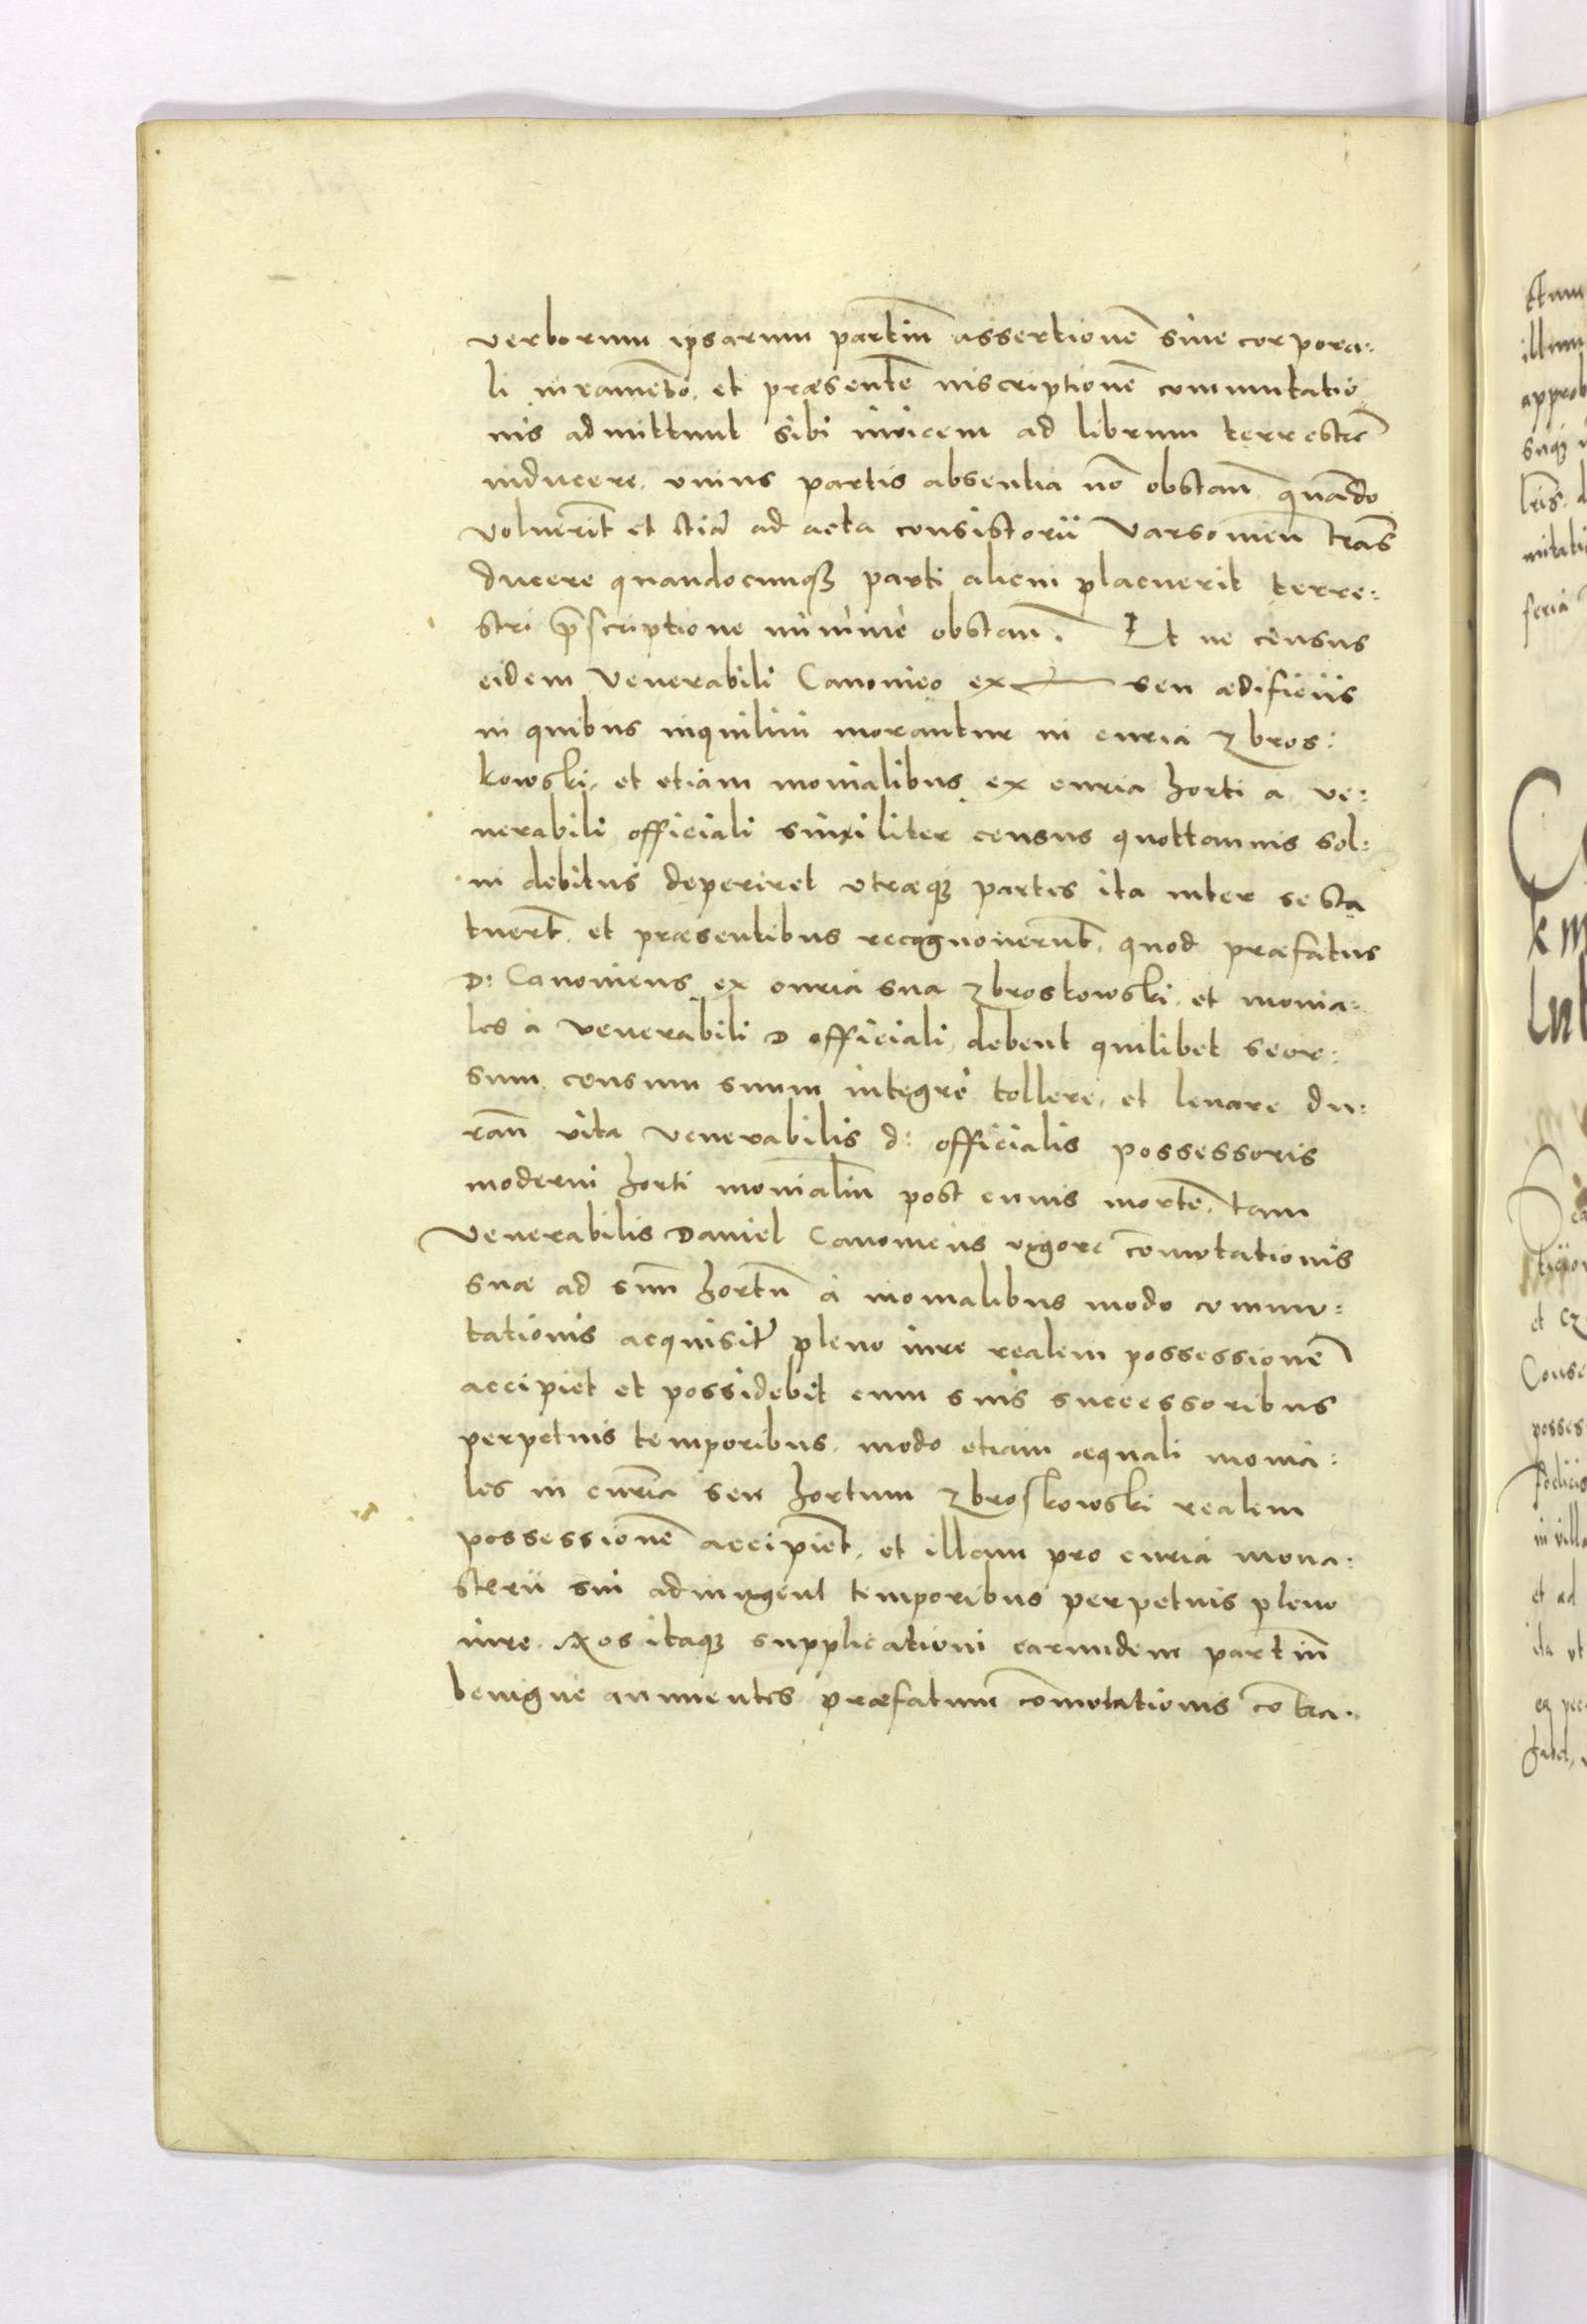 verborum ipsarum partiū assertionē sine corpora:
li iuramēto, et præsentē inscriptionē commutatio
nis admittunt sibi invicem ad librum terrestrē
inducere, unius partis absentia nō obstañ, quādo
voluerīt et etiā ad acta consistorii Varsovieñ trās
ducere quandocunq3 parti alicui placuerit terre:
stri p̄scriptione minime obstañ. Et ne census
eidem Venerabili Canonico ex seu ædificiis
in quibus inquilini morantur in curia Zbros:
kowski, et etiam monialibus ex curia horti a ve:
nerabili officiali similiter census quottannis sol:
vi debitus deperiret utræq3 partes ita inter se sta
tuerūt, et præsentibus recognoverunt, quod præfatus
D: Canonicus ex curia sua Zbroskowski, et monia:
les a Venerabili D officiali, debent quilibet seor:
sum censum suum integre tollere, et levare du:
rañ vita Venerabilis d: officialis possessoris
moderni horti monialiū post cuius mortē, tam
Venerabilis Daniel Canonicus vigore comutationis
suæ ad suū hortū a monialibus modo commu:
tationis acquisitū pleno iure realem possessionē
accipiet et possidebit cum suis successoribus
perpetuis temporibus, modo etiam æquali monia:
les in curiā seu hortum Zbroskowski realem
possessionē accipiēt, et illam pro curia mona:
sterii sui adiungent temporibus perpetuis pleno
iure. Nos itaq3 supplicationi earundem partiū
benigne annuentes præfatum comutationis contra: